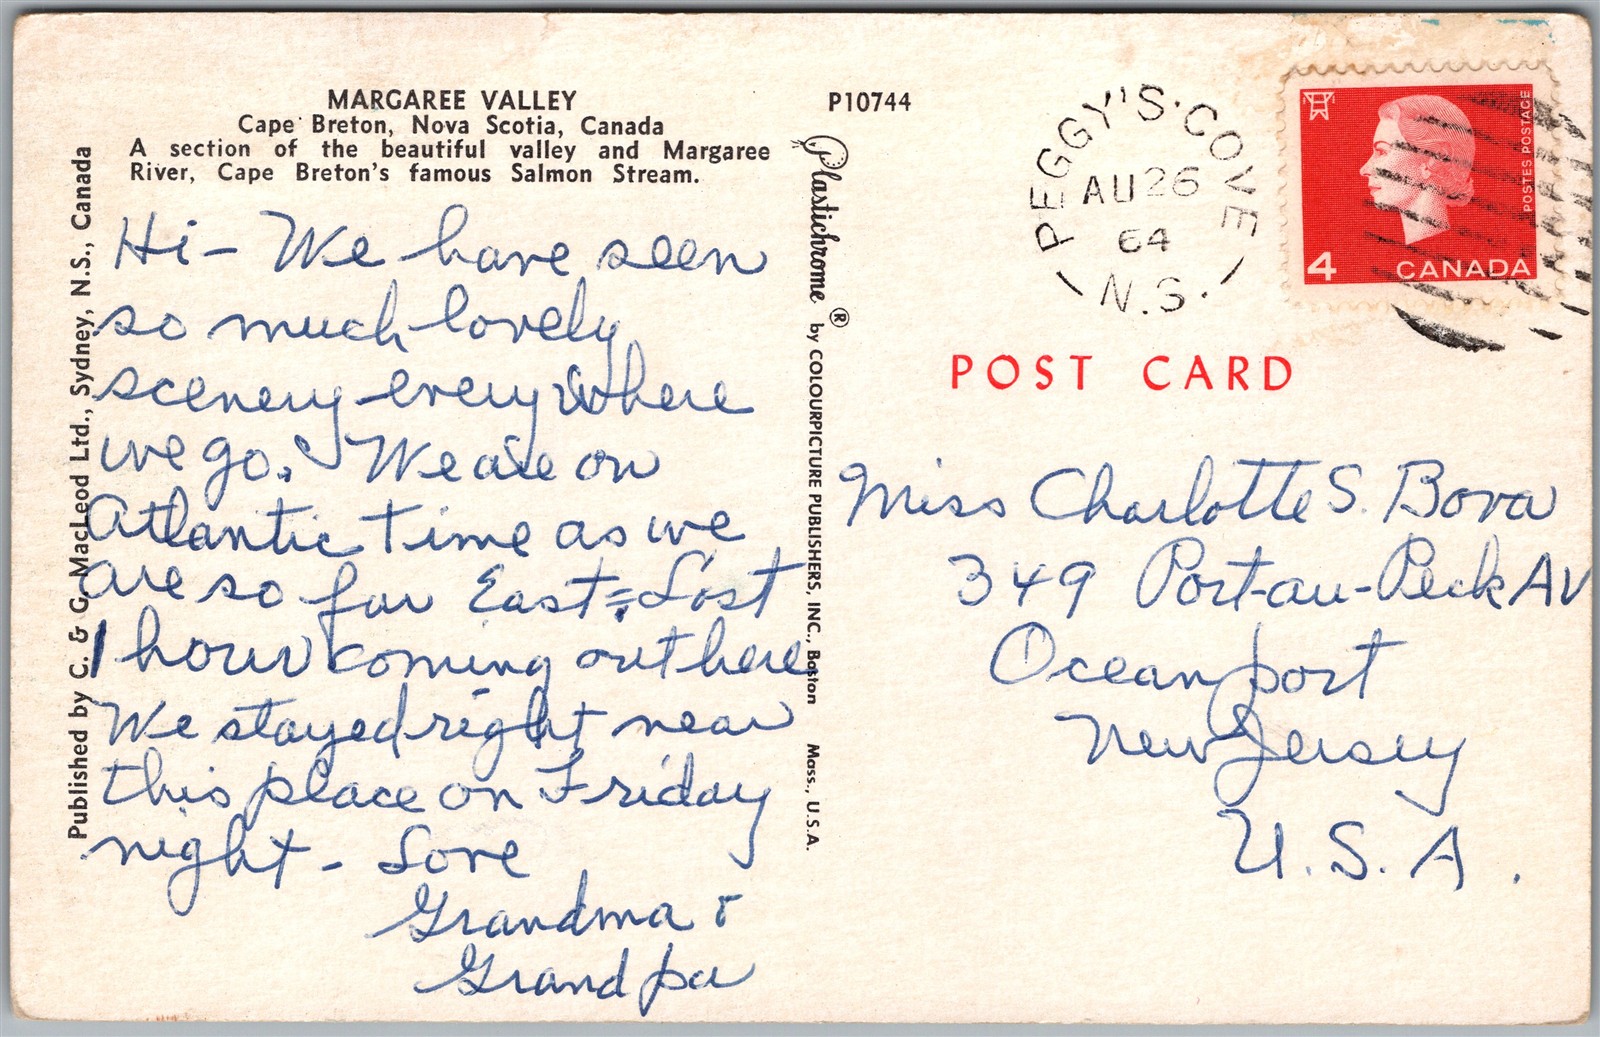 MARGAREE VALLEY
Cape Breton, Nova Scotia, Canada
A section of the beautiful valley and Margaree
River, Cape Breton's famous Salmon Stream.
P10744
Published by C. & G. MacLeod Ltd., Sydney, N.S., Canada
Hi - We have seen
so much lovely
scenery everywhere
we go. We are on
Atlantic Time as we
are so far East = Lost
1 hour coming out here
We stayed right near
this place on Friday
night - Love
Grandma &
Grandpa
Plastichrome ® by COLOURPICTURE PUBLISHERS, INC., Boston Mass., U.S.A.
PEGGY'S COVE
AU 26
64
N.S.
POSTES POSTAGE
4 CANADA
POST CARD
Miss Charlotte S. Bova
349 Port-au-Peck AV
Oceanport
New Jersey
U.S.A.